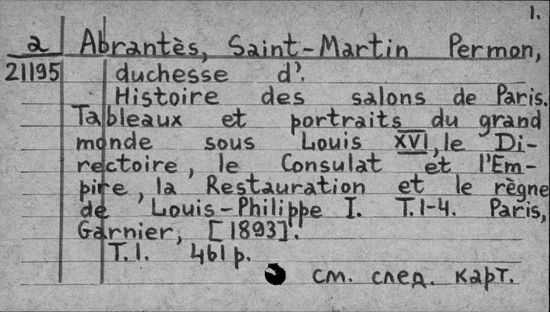 1.
a Abrantès, Saint-Martin Permon,
21195 duchesse d'.
Histoire des salons de Paris.
Tableaux et portraits du grand
monde sous Louis XVI, le Di-
rectoire, le Consulat et l'Em-
pire, la Restauration et le règne
de Louis-Philippe I. T.1-4. Paris,
Garnier, [1893].
T.1. 461 p.
см. след. карт.